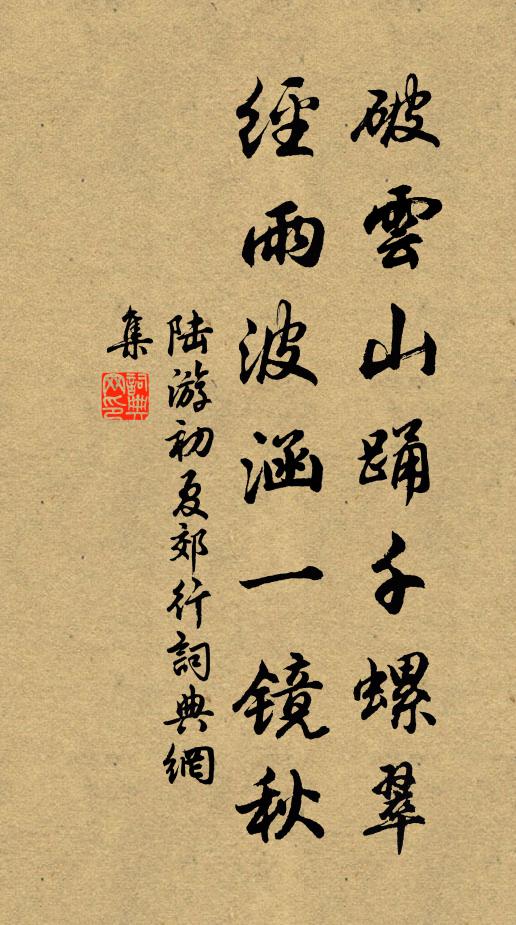 破雲山踊千螺翠
經雨波涵一镜秋
陆游初夏郊行詞典網
集
詞典网印